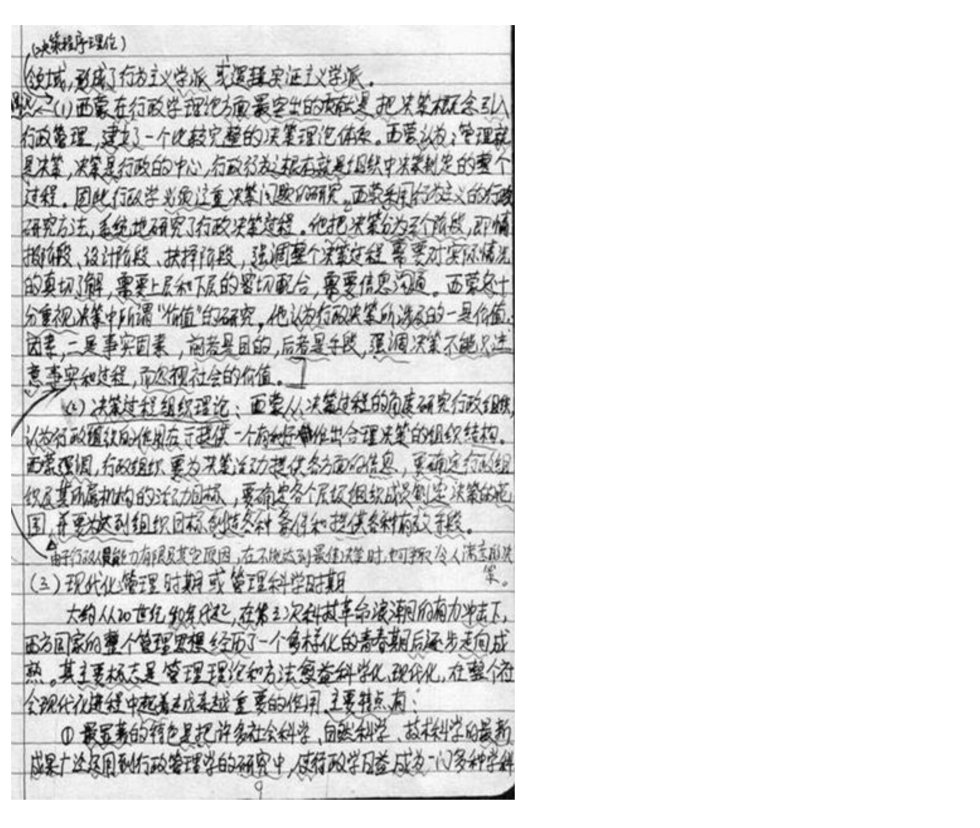 (决策程序理论)
领域,形成了行为主义学派或逻辑实证主义学派。
(1)西蒙在行政学理论方面最突出的贡献是把决策概念引入
行政管理,建立了一个比较完整的决策理论体系。西蒙认为:管理就
是决策,决策是行政的中心,行政行为过程就是组织中决策制定的整个
过程。因此行政学必须注重决策问题的研究。西蒙采用行为主义的行政
研究方法,系统地研究了行政决策过程。他把决策分为三个阶段,即情
报阶段、设计阶段、抉择阶段,强调整个决策过程需要对实际情况
的真切了解,需要上层和下层的密切配合,需要信息沟通。西蒙还十
分重视决策中所谓“价值”的研究。他认为行政决策所涉及的一是价值
因素,二是事实因素,前者是目的,后者是手段,强调决策不能只注
意事实和过程,而忽视社会的价值。
(2)决策过程组织理论:西蒙从决策过程的角度研究行政组织,
认为行政组织的作用在于提供一个有利于做出合理决策的组织结构。
西蒙强调,行政组织要为决策活动提供各方面的信息,要确定行政组
织及其所属机构的活动目标,要确定各个层级组织成员制定决策的范
围,并要为达到组织目标创造各种条件和提供各种有效手段。
由于行政人员能力有限及其它原因,在不能达到最佳决策时,也可争取令人满意的决
策。
(三)现代化管理时期或管理科学时期
大约从20世纪40年代起,在第三次科技革命浪潮的有力冲击下,
西方国家的整个管理思想经历了一个多样化的青春期后逐步走向成
熟。其主要标志是管理理论和方法愈益科学化、现代化,在整个社
会现代化进程中起着越来越重要的作用。主要特点有:
①最显著的特色是把许多社会科学、自然科学、技术科学的最新
成果广泛运用到行政管理学的研究中,使行政学日益成为一门多种学科
9